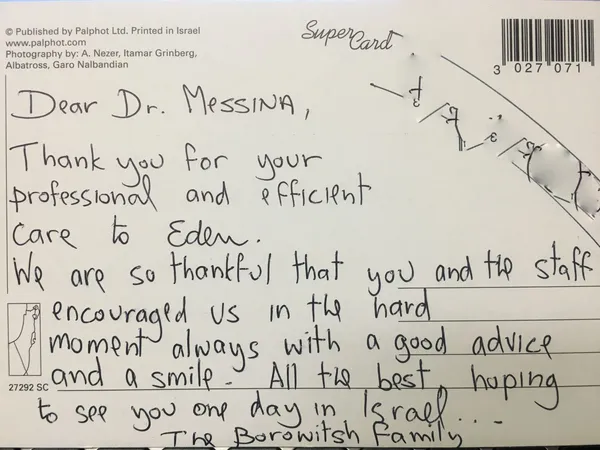 © Published by Palphot Ltd. Printed in Israel
www.palphot.com
Photography by: A. Nezer, Itamar Grinberg,
Albatross, Garo Nalbandian
Super Card
3 027071
Dear Dr. MESSINA,
Thank you for your
professional and efficient
care to Eden.
We are so thankful that you and the staff
encouraged us in the hard
moment always with a good advice
and a smile. All the best, hoping
27292 SC
to see you one day in Israel...
The Borowitsh Family